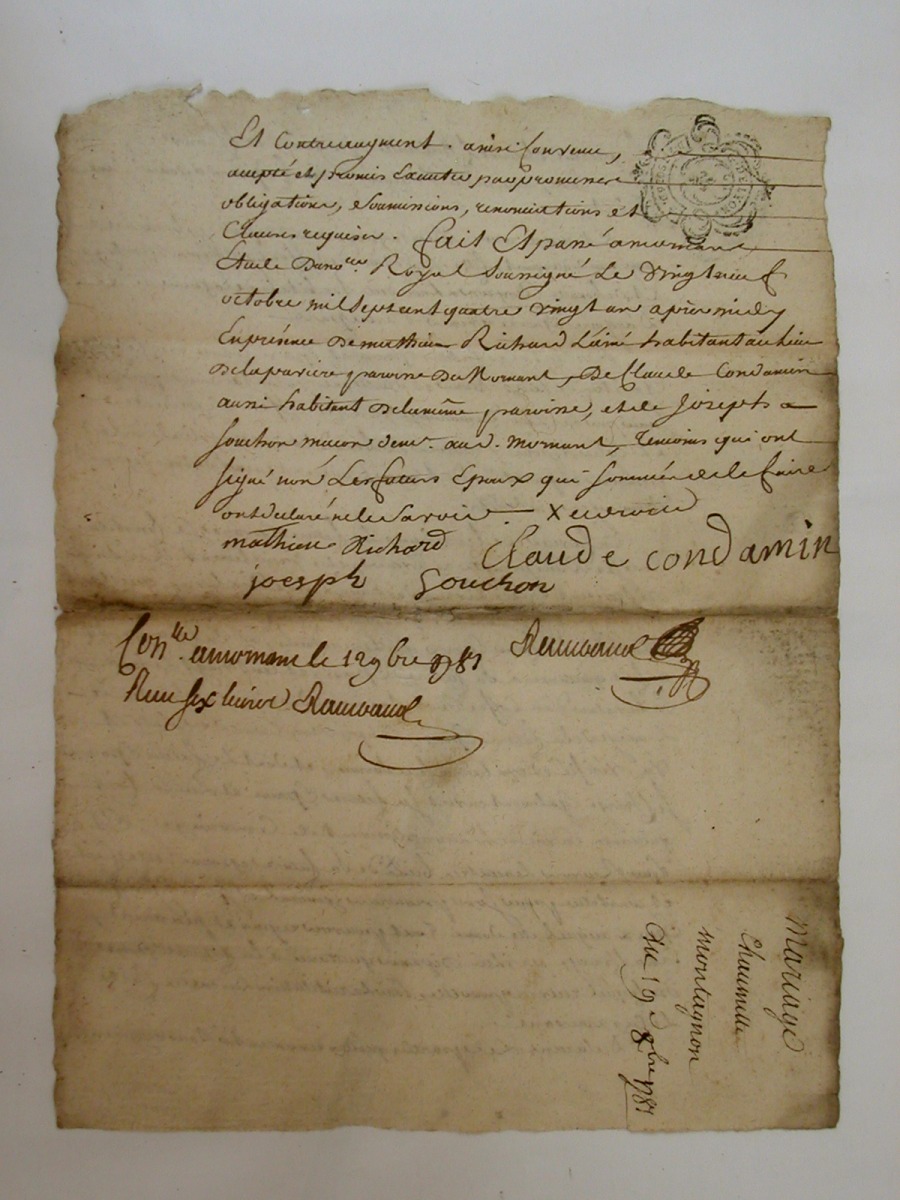 Et Contrèaugment. ainsi Convenu,
accepté et promis Executer par promesses
obligations, soumissions, renonciations et
Clauses requises. fait Et passé a mornant
Etude Du no.re Royal soussigné Le Vingt neuf
octobre mil sept cent quatre vingt un après midy
En présence de mathieu Richard L'ainé habitant au lieu
de la paroisse De Mornant, De Claude Condamin
aussi habitant de la même paroisse, et de Joseph
souchon macon dem.t aud. mornant, Temoins qui ont
signé non Les futurs Epoux qui sommés de le faire
ont declaré ne le savoir
mathieu Richard Claude condamin
joesph Souchon
Con.lle a mornant le 12 9bre 1781
Raimbaud
Reçu six livres Raimbaud
Mariage
Chaumelle
montagnon
Du 29e 8bre 1781